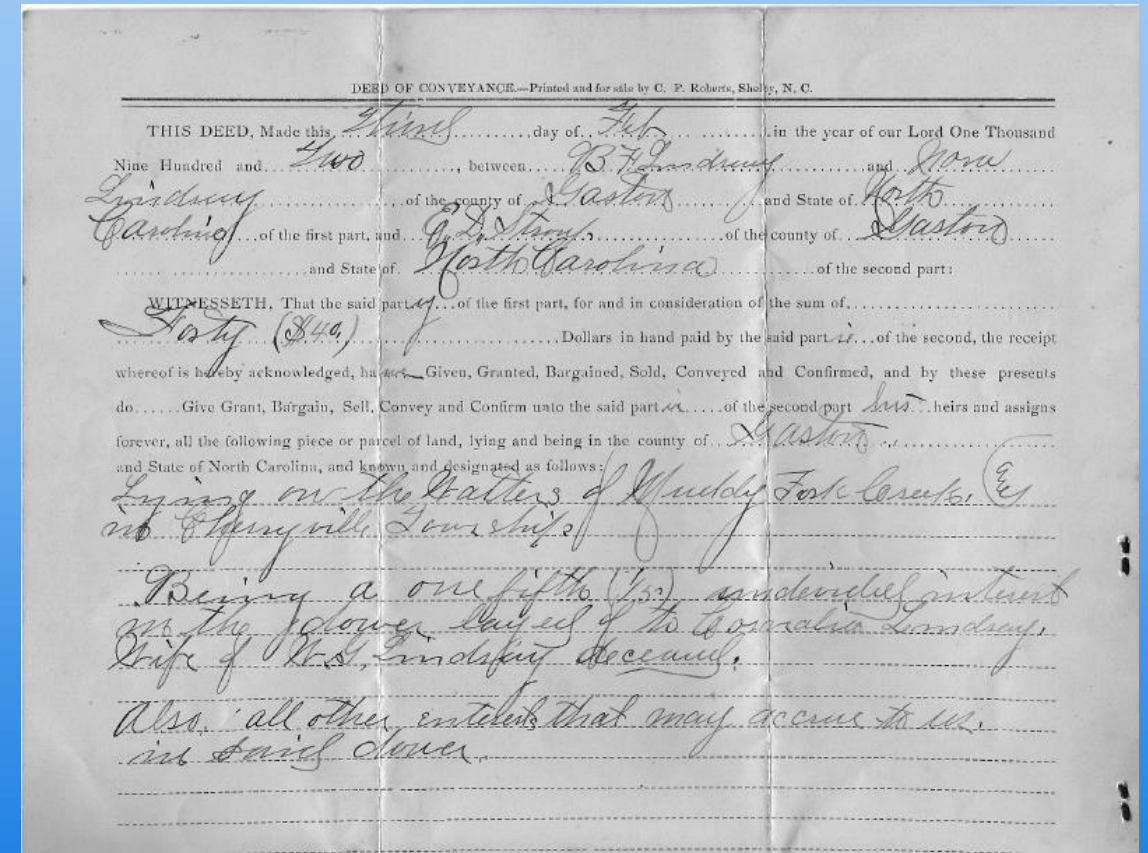 DEED OF CONVEYANCE.—Printed and for sale by C. P. Roberts, Shelby, N. C.
THIS DEED, Made this Third day of Feb in the year of our Lord One Thousand
Nine Hundred and Two, between B F Lindsay and Nora
Lindsay of the county of Gaston and State of North
Carolina of the first part, and E. D. Stroup of the county of Gaston
and State of North Carolina of the second part:
WITNESSETH, That the said party of the first part, for and in consideration of the sum of
Forty ($40.) Dollars in hand paid by the said part of the second, the receipt
whereof is hereby acknowledged, have Given, Granted, Bargained, Sold, Conveyed and Confirmed, and by these presents
do Give Grant, Bargain, Sell, Convey and Confirm unto the said part of the second part his heirs and assigns
forever, all the following piece or parcel of land, lying and being in the county of Gaston
and State of North Carolina, and known and designated as follows:
Lying on the Watters of Muddy Fork Creek.
in Cherryville Township
Being a one fifth (1/5) undevided interest
in the dower layed of to Cornalia Lindsay.
Wife of W.G. Lindsay deceased.
Also, all other enterests that may accrue to us.
in said dower.